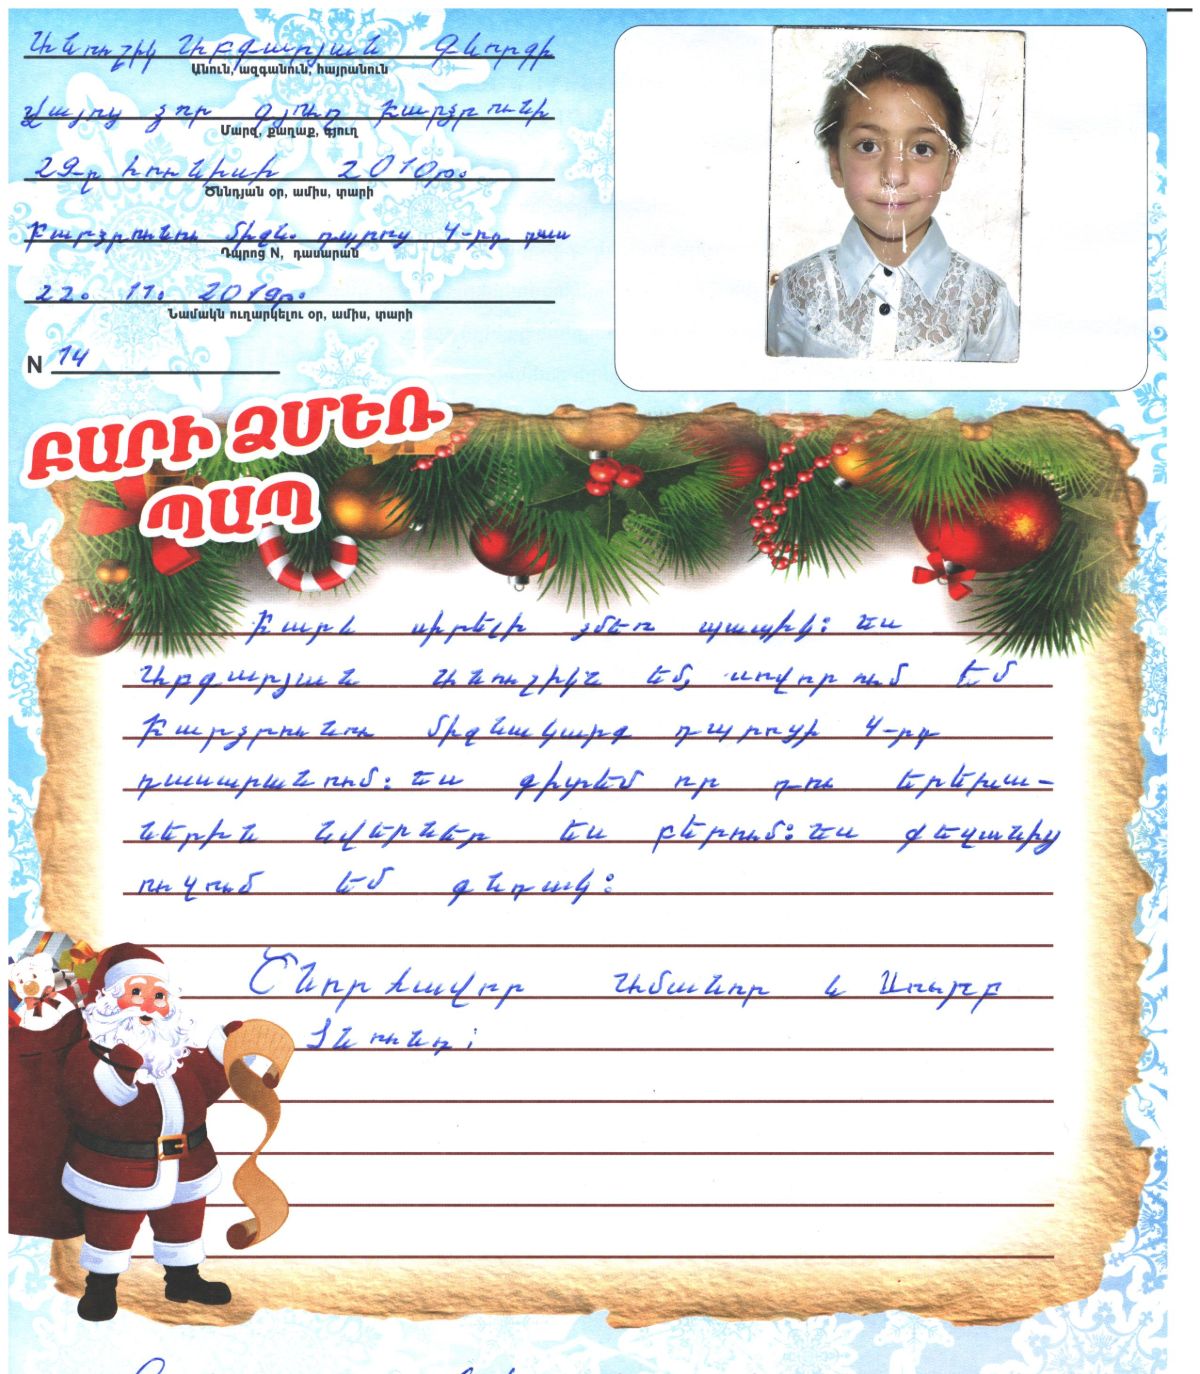 Անուշիկ Աբգարյան Գևորգի
Անուն, ազգանուն, հայրանուն
Վայոց ձոր գյուղ Բարձրունի
Մարզ, քաղաք, գյուղ
29-ը հունիսի 2010թ.
Ծննդյան օր, ամիս, տարի
Բարձրունու միջն. դպրոց 4-րդ դաս
Դպրոց N, դասարան
22. 11. 2019թ.
Նամակն ուղարկելու օր, ամիս, տարի
N 14
ԲԱՐԻ ՁՄԵՌ
ՊԱՊ
Բարև սիրելի ձմեռ պապիկ: Ես
Աբգարյան Անուշիկն եմ, սովորում եմ
Բարձրունու միջնակարգ դպրոցի 4-րդ
դասարանում: Ես գիտեմ որ դու երեխա-
ներին նվերներ ես բերում: Ես քեզանից
ուզում եմ գնդակ:
Շնորհավոր Ամանոր և Սուրբ
Ծնունդ: